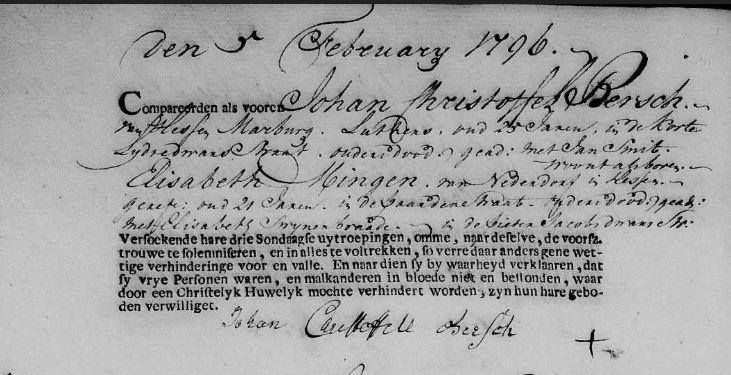 den 5 February 1796.
Compareerden als vooren Johan Christoffel Bersch.
van Hessen Marburg. Luthers. oud 25 Jaren, in de Korte
Straat. ouders dood. gead: met Jan Smit.
woont als boven.
Elisabeth Mingen. van Nederdorf in Hessen.
geref: oud 21 Jaren. in de Paardenstraat. ouders dood: geadt:
met Elisabeth in de Pieter Jacobs dwars Str:
Versoekende hare drie Sondaagse uytroepingen, omme, naar deselve, de voorsz.
trouwe te solemniseren, en in alles te voltrekken, so verre daar anders gene wet-
tige verhinderinge voor en valle. En naar dien sy by waarheyd verklaaren, dat
sy vrye Personen waren, en malkanderen in bloede niet en bestonden, waar
door een Christelyk Huwelyk mochte verhindert worden, zyn hun hare gebo-
den verwilliget.
Johan Christoffell Bersch